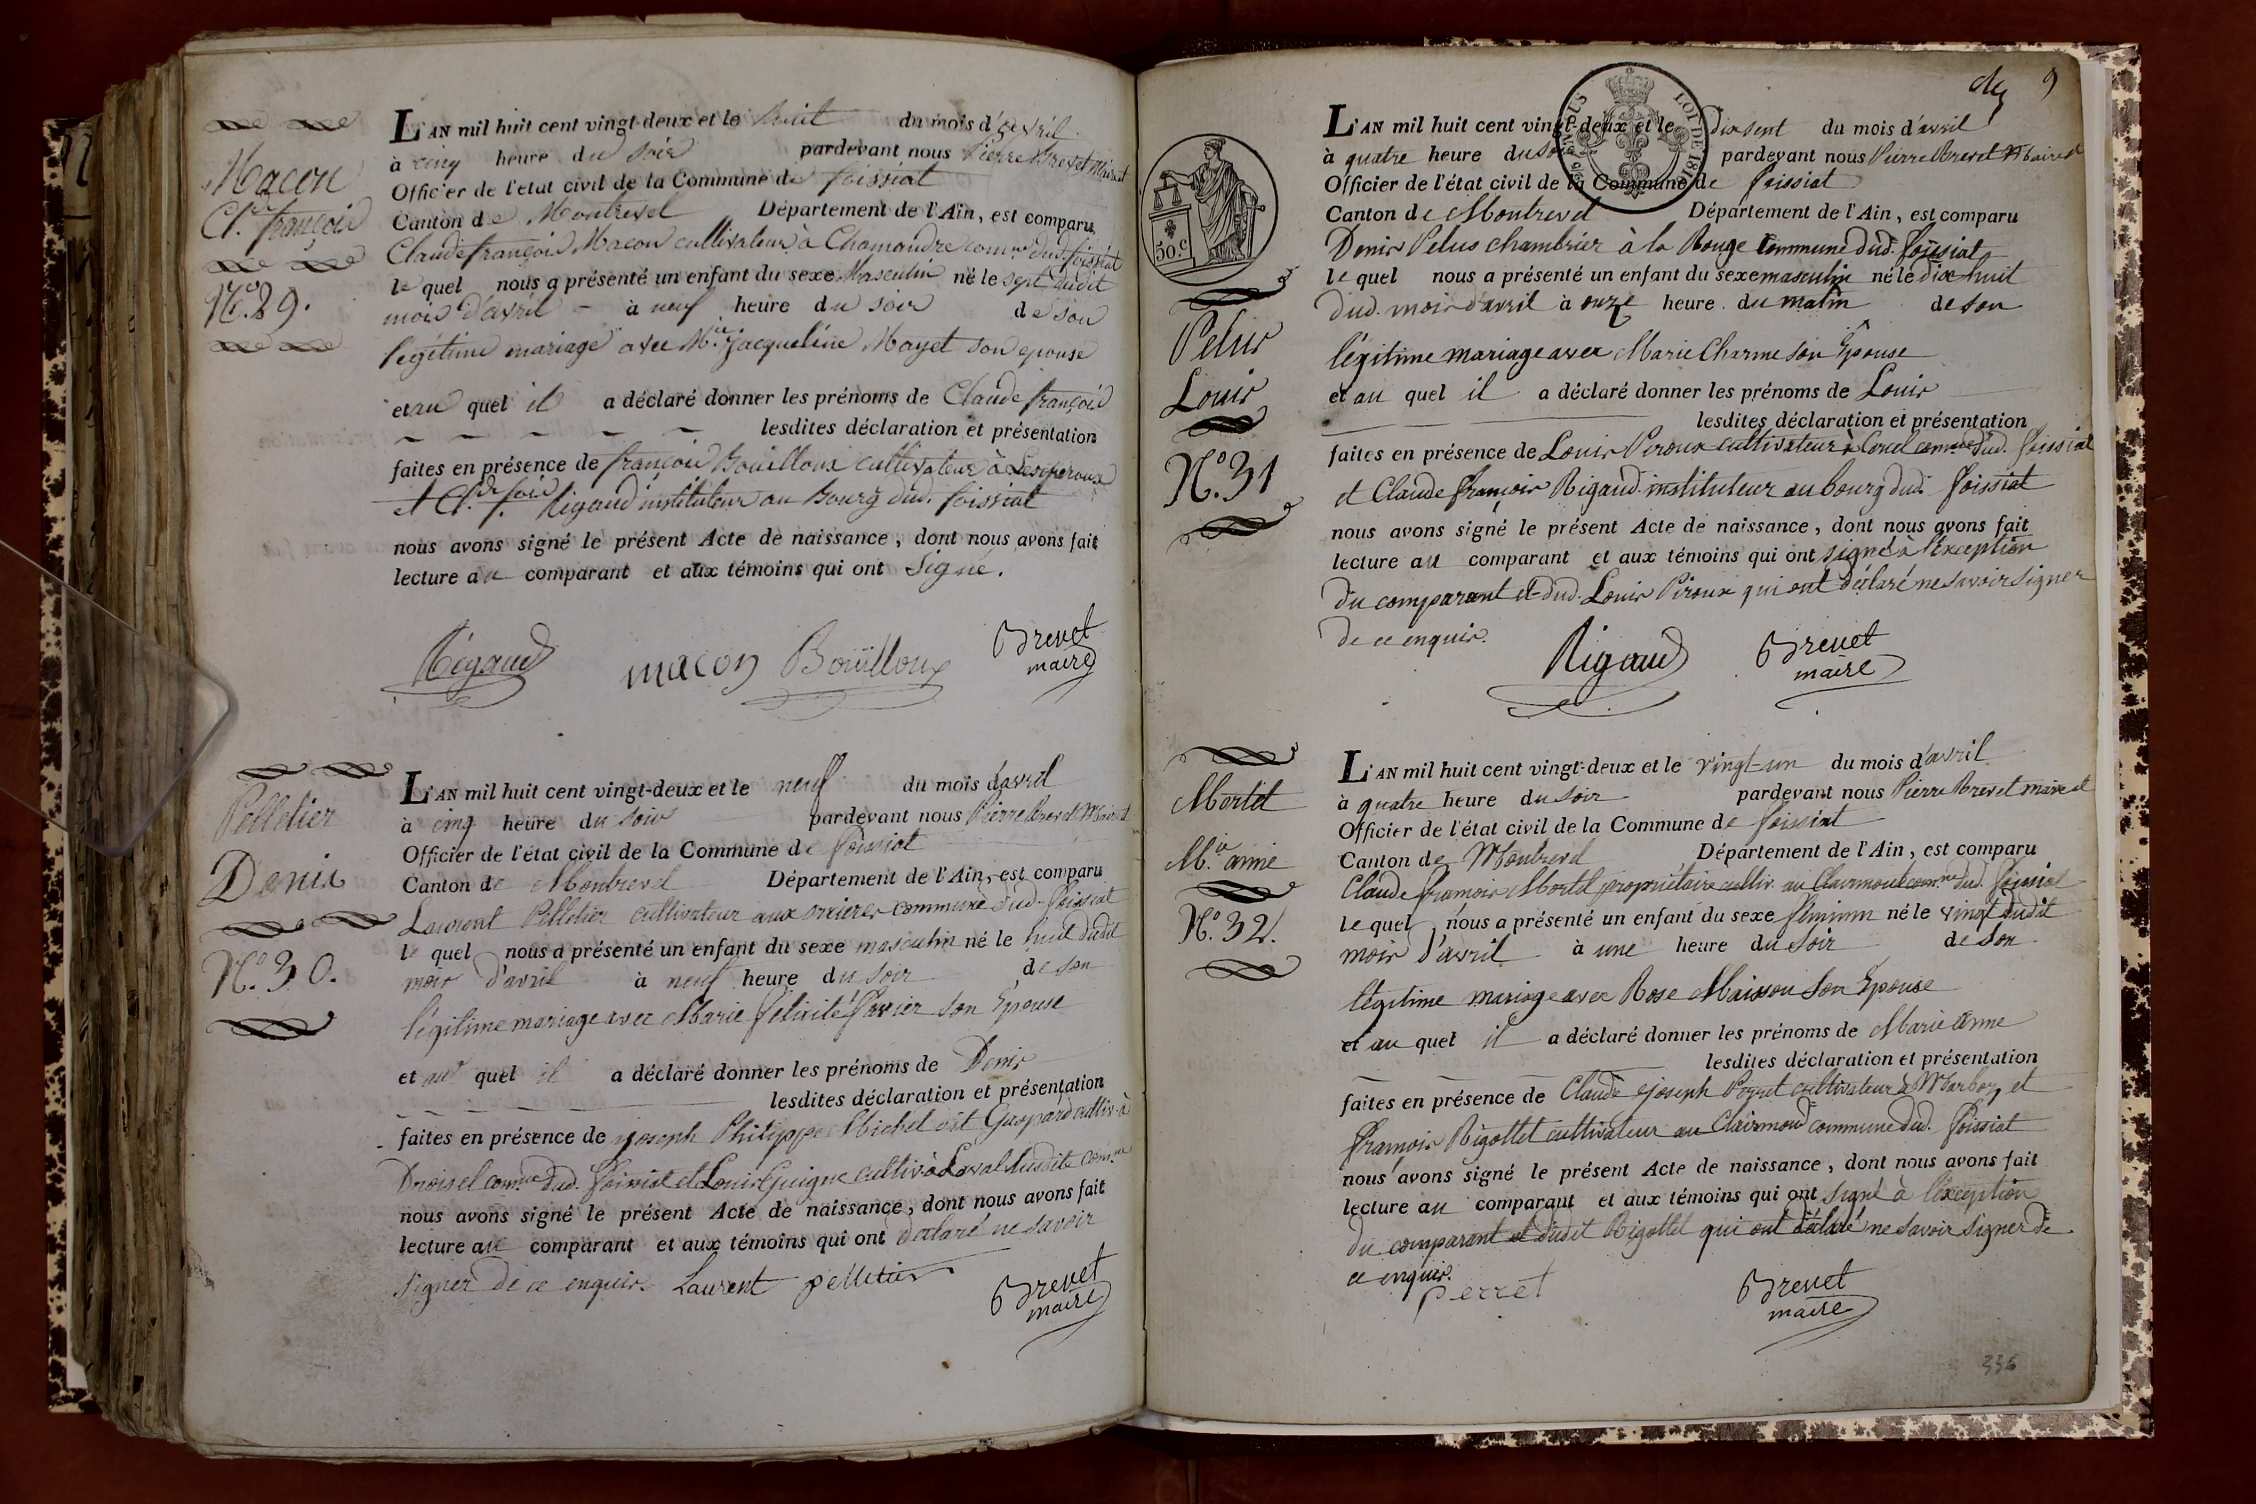 Macon
Cl.de françois
N.o 29.
L'AN mil huit cent vingt-deux et le huit du mois d'avril
à cinq heure du soir pardevant nous Pierre Brevet Maire et
Officier de l'état civil de la Commune de foissiat
Canton de Montrevel Département de l'Ain, est comparu
Claude françois Macon cultivateur à Chamandre com.ne dud. foissiat
le quel nous a présenté un enfant du sexe Masculin né le sept dudit
mois d'avril à neuf heure du soir de son
légitime mariage avec M.ie Jacqueline Mayet son epouse
et au quel il a déclaré donner les prénoms de Claude françois
lesdites déclaration et présentation
faites en présence de françois Bouilloux cultivateur à
et Cl.de fois Rigaud instituteur au Bourg dud. foissiat
nous avons signé le présent Acte de naissance, dont nous avons fait
lecture au comparant et aux témoins qui ont Signé.
Rigaud macon Boüilloux Brevet
maire
Pelletier
Denis
N.o 30.
L'AN mil huit cent vingt-deux et le neuf du mois d'avril
à cinq heure du soir pardevant nous Pierre Brevet Maire et
Officier de l'état civil de la Commune de foissiat
Canton de Montrevel Département de l'Ain, est comparu
Laurent Pelletier cultivateur aux orcieres commune dud. foissiat
le quel nous a présenté un enfant du sexe masculin né le huit dudit
mois d'avril à neuf heure du soir de son
légitime mariage avec Marie félicité favier son Epouse
et au quel il a déclaré donner les prénoms de Denis
lesdites déclaration et présentation
faites en présence de joseph Philippe Michel dit Gaspard cultiv. à
Droisel com.ne dud. foissiat et Louis Guigue cultiv. à Laval susdite com.ne
nous avons signé le présent Acte de naissance, dont nous avons fait
lecture au comparant et aux témoins qui ont déclaré ne savoir
signer de ce enquis. Laurent pelletier Brevet
maire
9
LOI DE 1816
50.c
Pelus
Louis
N.o 31
L'AN mil huit cent vingt-deux et le dix sept du mois d'avril
à quatre heure du soir pardevant nous Pierre Brevet Maire et
Officier de l'état civil de la Commune de foissiat
Canton de Montrevel Département de l'Ain, est comparu
Denis Pelus chambrier à la Rouge commune dud. foissiat
le quel nous a présenté un enfant du sexe masculin né le dix huit
dud. mois d'avril à onze heure du matin de son
légitime mariage avec Marie Charme son Epouse
et au quel il a déclaré donner les prénoms de Louis
lesdites déclaration et présentation
faites en présence de Louis Piroux cultivateur à com.ne dud. foissiat
et Claude françois Rigaud instituteur au bourg dud. foissiat
nous avons signé le présent Acte de naissance, dont nous avons fait
lecture au comparant et aux témoins qui ont signé à l'exception
du comparant et dud. Louis Piroux qui ont déclaré ne savoir signer
de ce enquis.
Rigaud Brevet
maire
Mortel
M.ie anne
N.o 32.
L'AN mil huit cent vingt-deux et le vingt-un du mois d'avril
à quatre heure du soir pardevant nous Pierre Brevet maire et
Officier de l'état civil de la Commune de foissiat
Canton de Montrevel Département de l'Ain, est comparu
Claude françois Mortel propriétaire cultiv. au Clairmont com.ne dud. foissiat
le quel nous a présenté un enfant du sexe féminin né le vingt dudit
mois d'avril à une heure du soir de son
légitime mariage avec Rose Maisson son Epouse
et au quel il a déclaré donner les prénoms de Marie Anne
lesdites déclaration et présentation
faites en présence de Claude joseph Perret cultivateur à Marboz et
françois Rigottet cultivateur au Clairmond commune dud. foissiat
nous avons signé le présent Acte de naissance, dont nous avons fait
lecture au comparant et aux témoins qui ont signé à l'exception
du comparant et dudit Rigottet qui ont déclaré ne savoir signer de
ce enquis.
Perret Brevet
maire
336